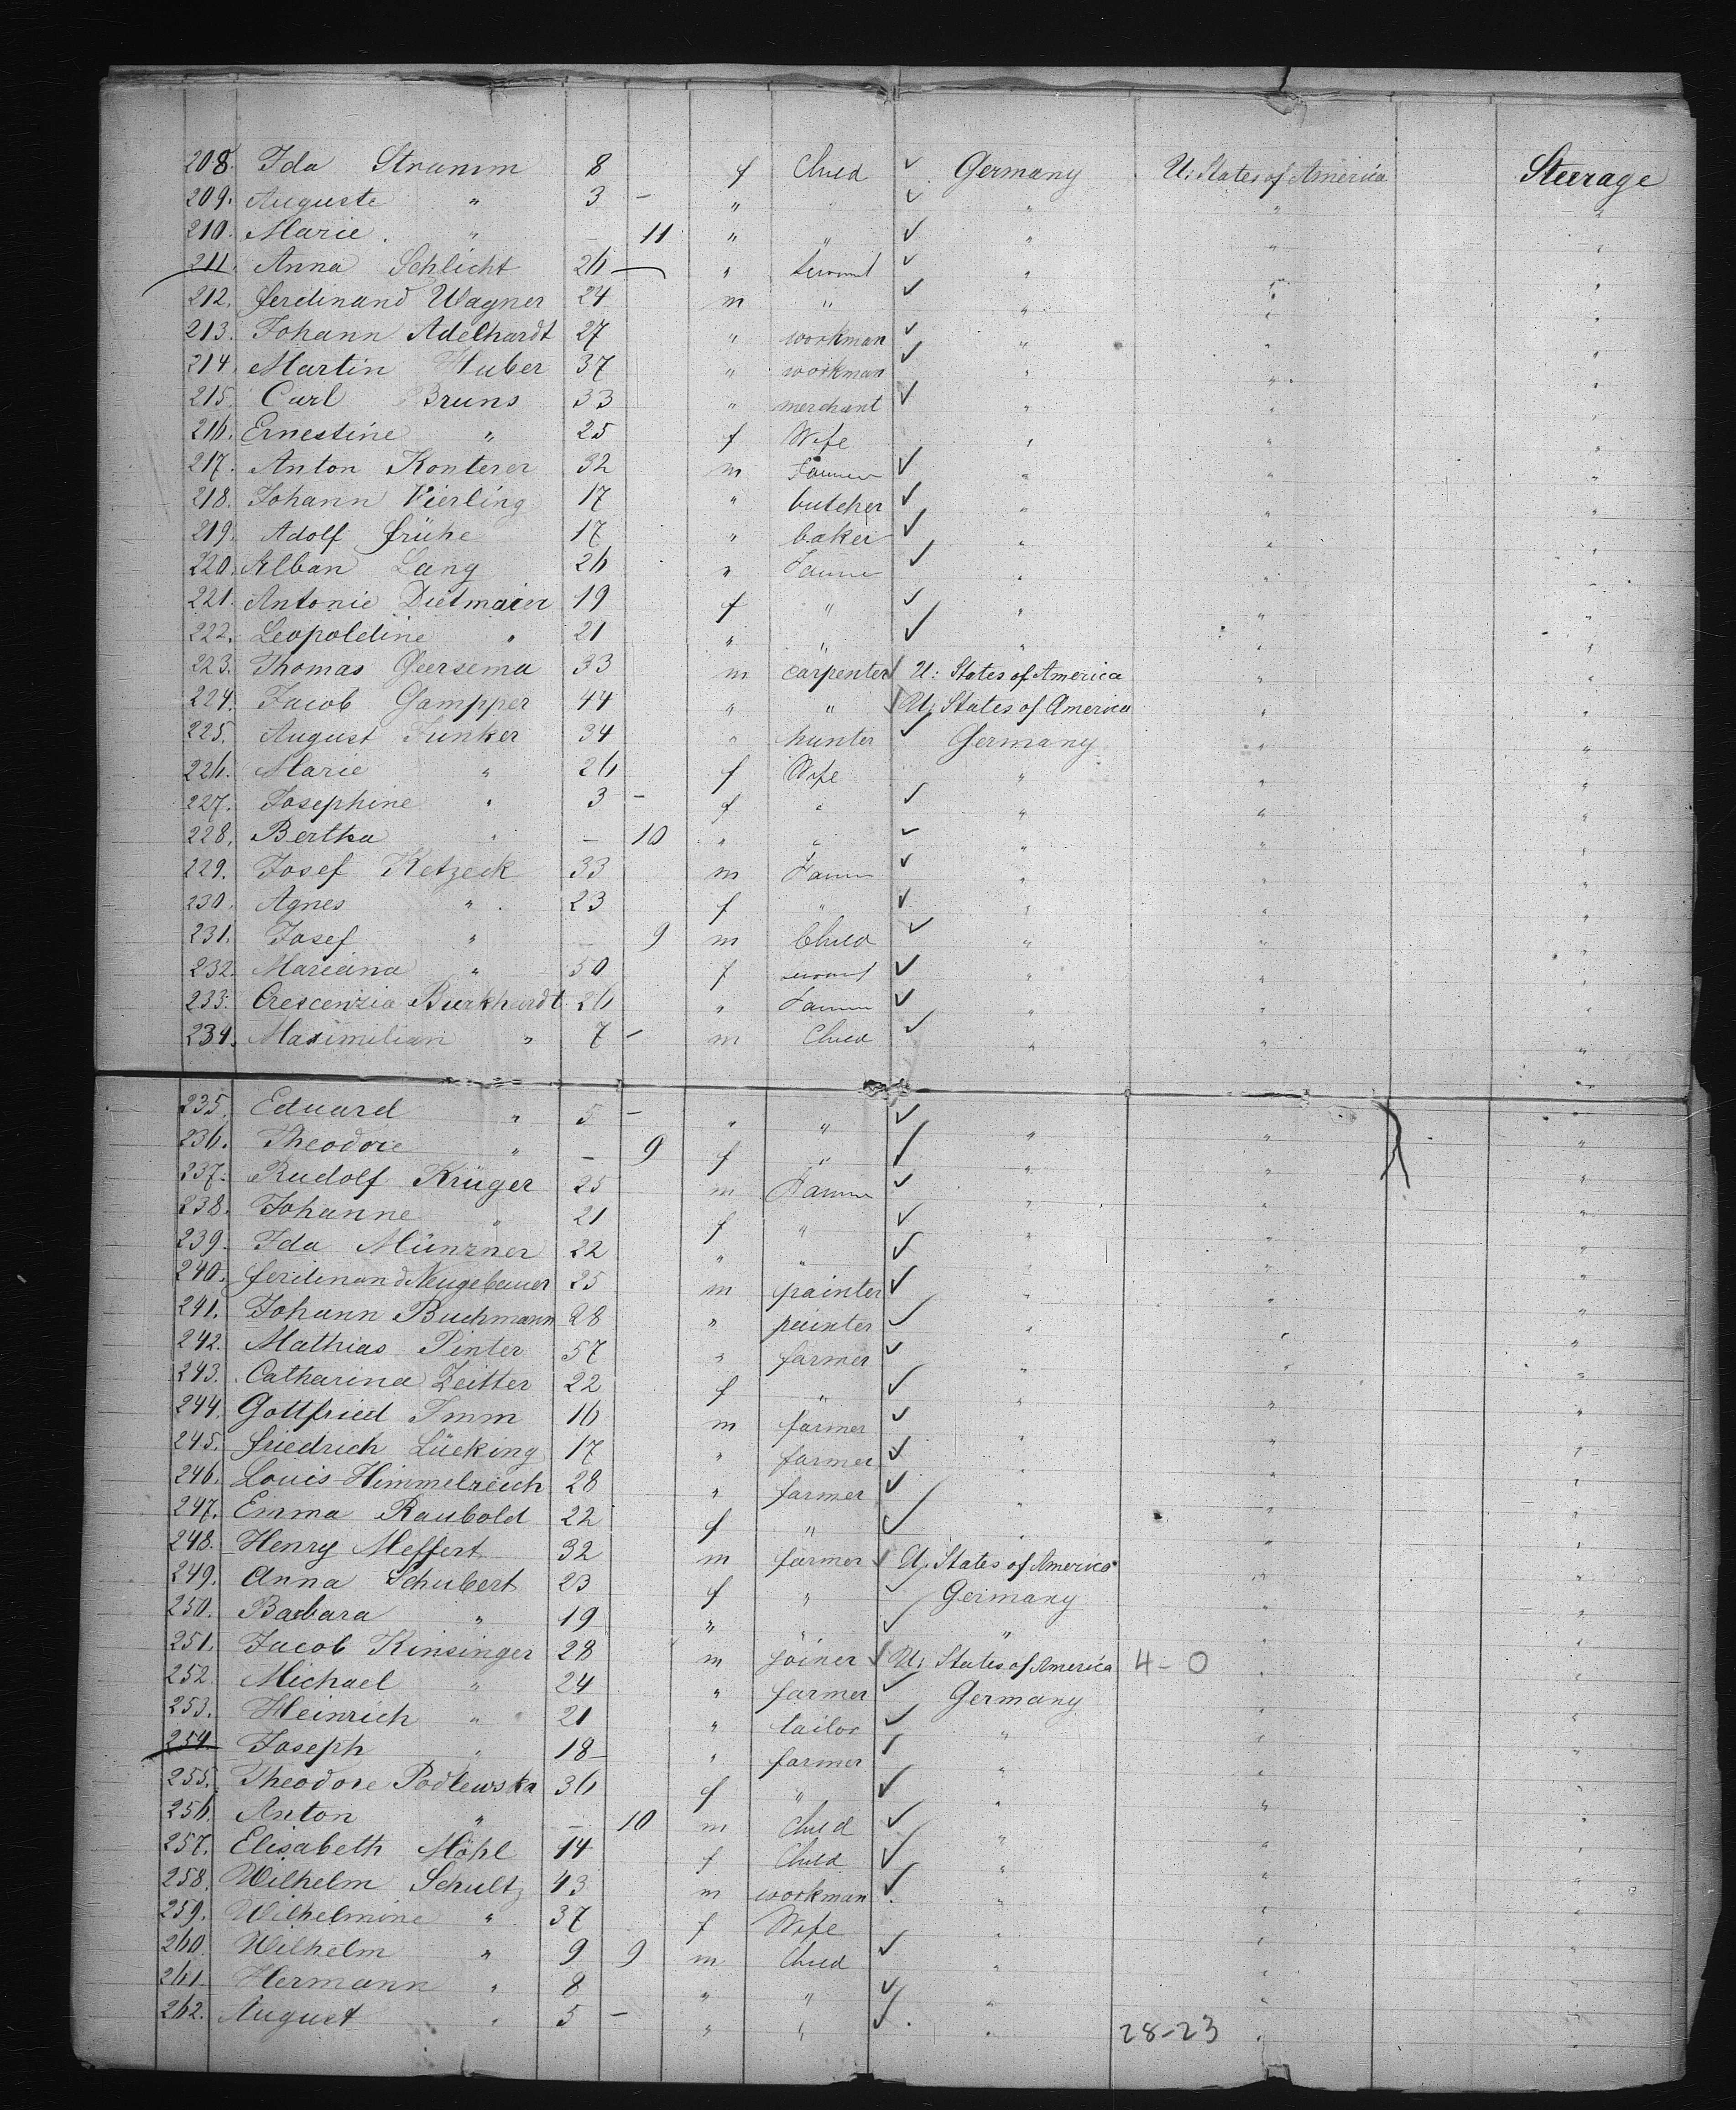 208. Ida Stramm 8 f Child ✓ Germany U: States of America Steerage
209. Auguste " 3 - " " ✓ " " "
210. Marie " - 11 " " ✓ " " "
211. Anna Schlicht 26 " servant ✓ " " "
212. Ferdinand Wagner 24 m " ✓ " " "
213. Johann Adelhardt 27 " workman ✓ " " "
214. Martin Huber 37 " workman ✓ " " "
215. Carl Bruns 33 " merchant ✓ " " "
216. Ernestine " 25 f Wife " " "
217. Anton Konterer 32 m Farmer ✓ " " "
218. Johann Vierling 17 " butcher ✓ " " "
219. Adolf Frühe 17 " baker ✓ " " "
220. Alban Lang 26 " Farmer ✓ " " "
221. Antonie Dietmaier 19 f " ✓ " " "
222. Leopoldine " 21 " " ✓ " " "
223. Thomas Geersema 33 m carpenter ✓ U: States of America " "
224. Jacob Gampper 44 " " ✓ U: States of America " "
225. August Funker 34 " hunter ✓ Germany " "
226. Marie " 26 f Wife " " "
227. Josephine " 3 - f " ✓ " " "
228. Bertha " - 10 " " ✓ " " "
229. Josef Ketzeck 33 m Farmer ✓ " " "
230. Agnes " 23 f " ✓ " " "
231. Josef " - 9 m Child ✓ " " "
232. Marianna " 50 f servant ✓ " " "
233. Crescenzia Burkhardt 26 " Farmer ✓ " " "
234. Maximilian " 7 - m Child ✓ " " "
235. Eduard " 5 - " " ✓ " " "
236. Theodore " - 9 f " ✓ " " "
237. Rudolf Krüger 25 m Farmer ✓ " " "
238. Johanne " 21 f " ✓ " " "
239. Ida Münzner 22 " " ✓ " " "
240. Ferdinand Neugebauer 25 m painter ✓ " " "
241. Johann Buchmann 28 " painter ✓ " " "
242. Mathias Pinter 57 " farmer ✓ " " "
243. Catharina Zeitter 22 f " ✓ " " "
244. Gottfried Imm 16 m farmer ✓ " " "
245. Friedrich Lücking 17 " farmer ✓ " " "
246. Louis Himmelreich 28 " farmer ✓ " " "
247. Emma Raubold 22 f " ✓ " " "
248. Henry Meffert 32 m farmer ✓ U: States of America " "
249. Anna Schubert 23 f " ✓ Germany " "
250. Barbara " 19 " " ✓ " " "
251. Jacob Kinsinger 28 m joiner ✓ U: States of America 4-0 " "
252. Michael " 24 " farmer ✓ Germany " "
253. Heinrich " 21 " tailor ✓ " " "
254. Joseph " 18 " farmer ✓ " " "
255. Theodore Podlewska 36 f " ✓ " " "
256. Anton " - 10 m Child ✓ " " "
257. Elisabeth Möhl 14 f Child ✓ " " "
258. Wilhelm Schultz 43 m workman ✓ " " "
259. Wilhelmine " 37 f Wife " " "
260. Wilhelm " 9 9 m Child ✓ " " "
261. Hermann " 8 " " ✓ " " "
262. August " 5 - " " ✓ " 28-23 "